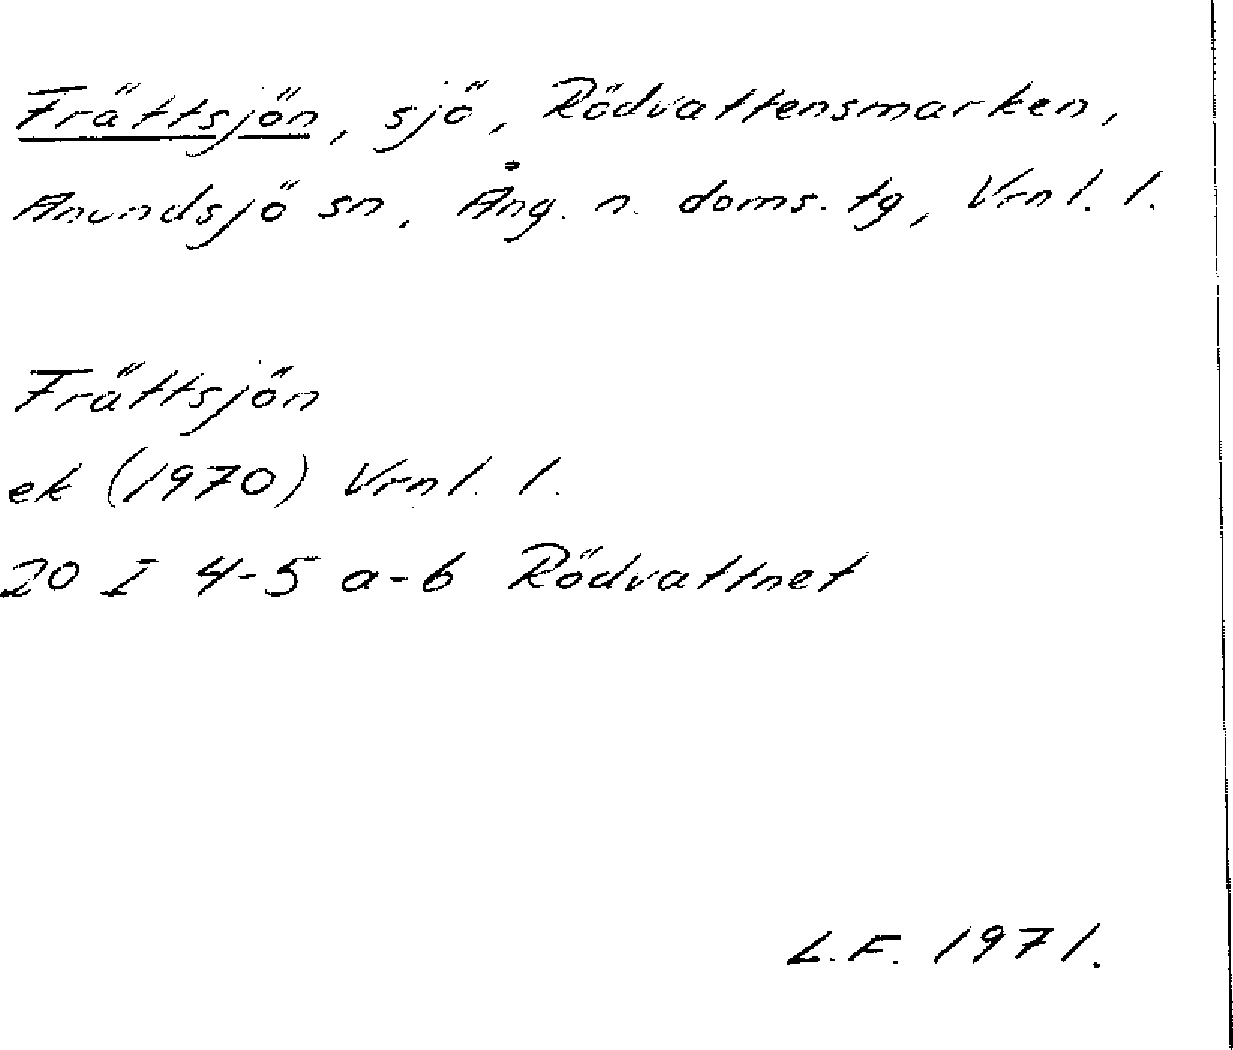 Frättsjön, sjö, Rödvattensmarken,
Anundsjö sn, Ång. n. doms. tg, Vrnl. l.
Frättsjön
ek (1970) Vrnl. l.
20 I 4-5 a-b Rödvattnet
L.F. 1971.